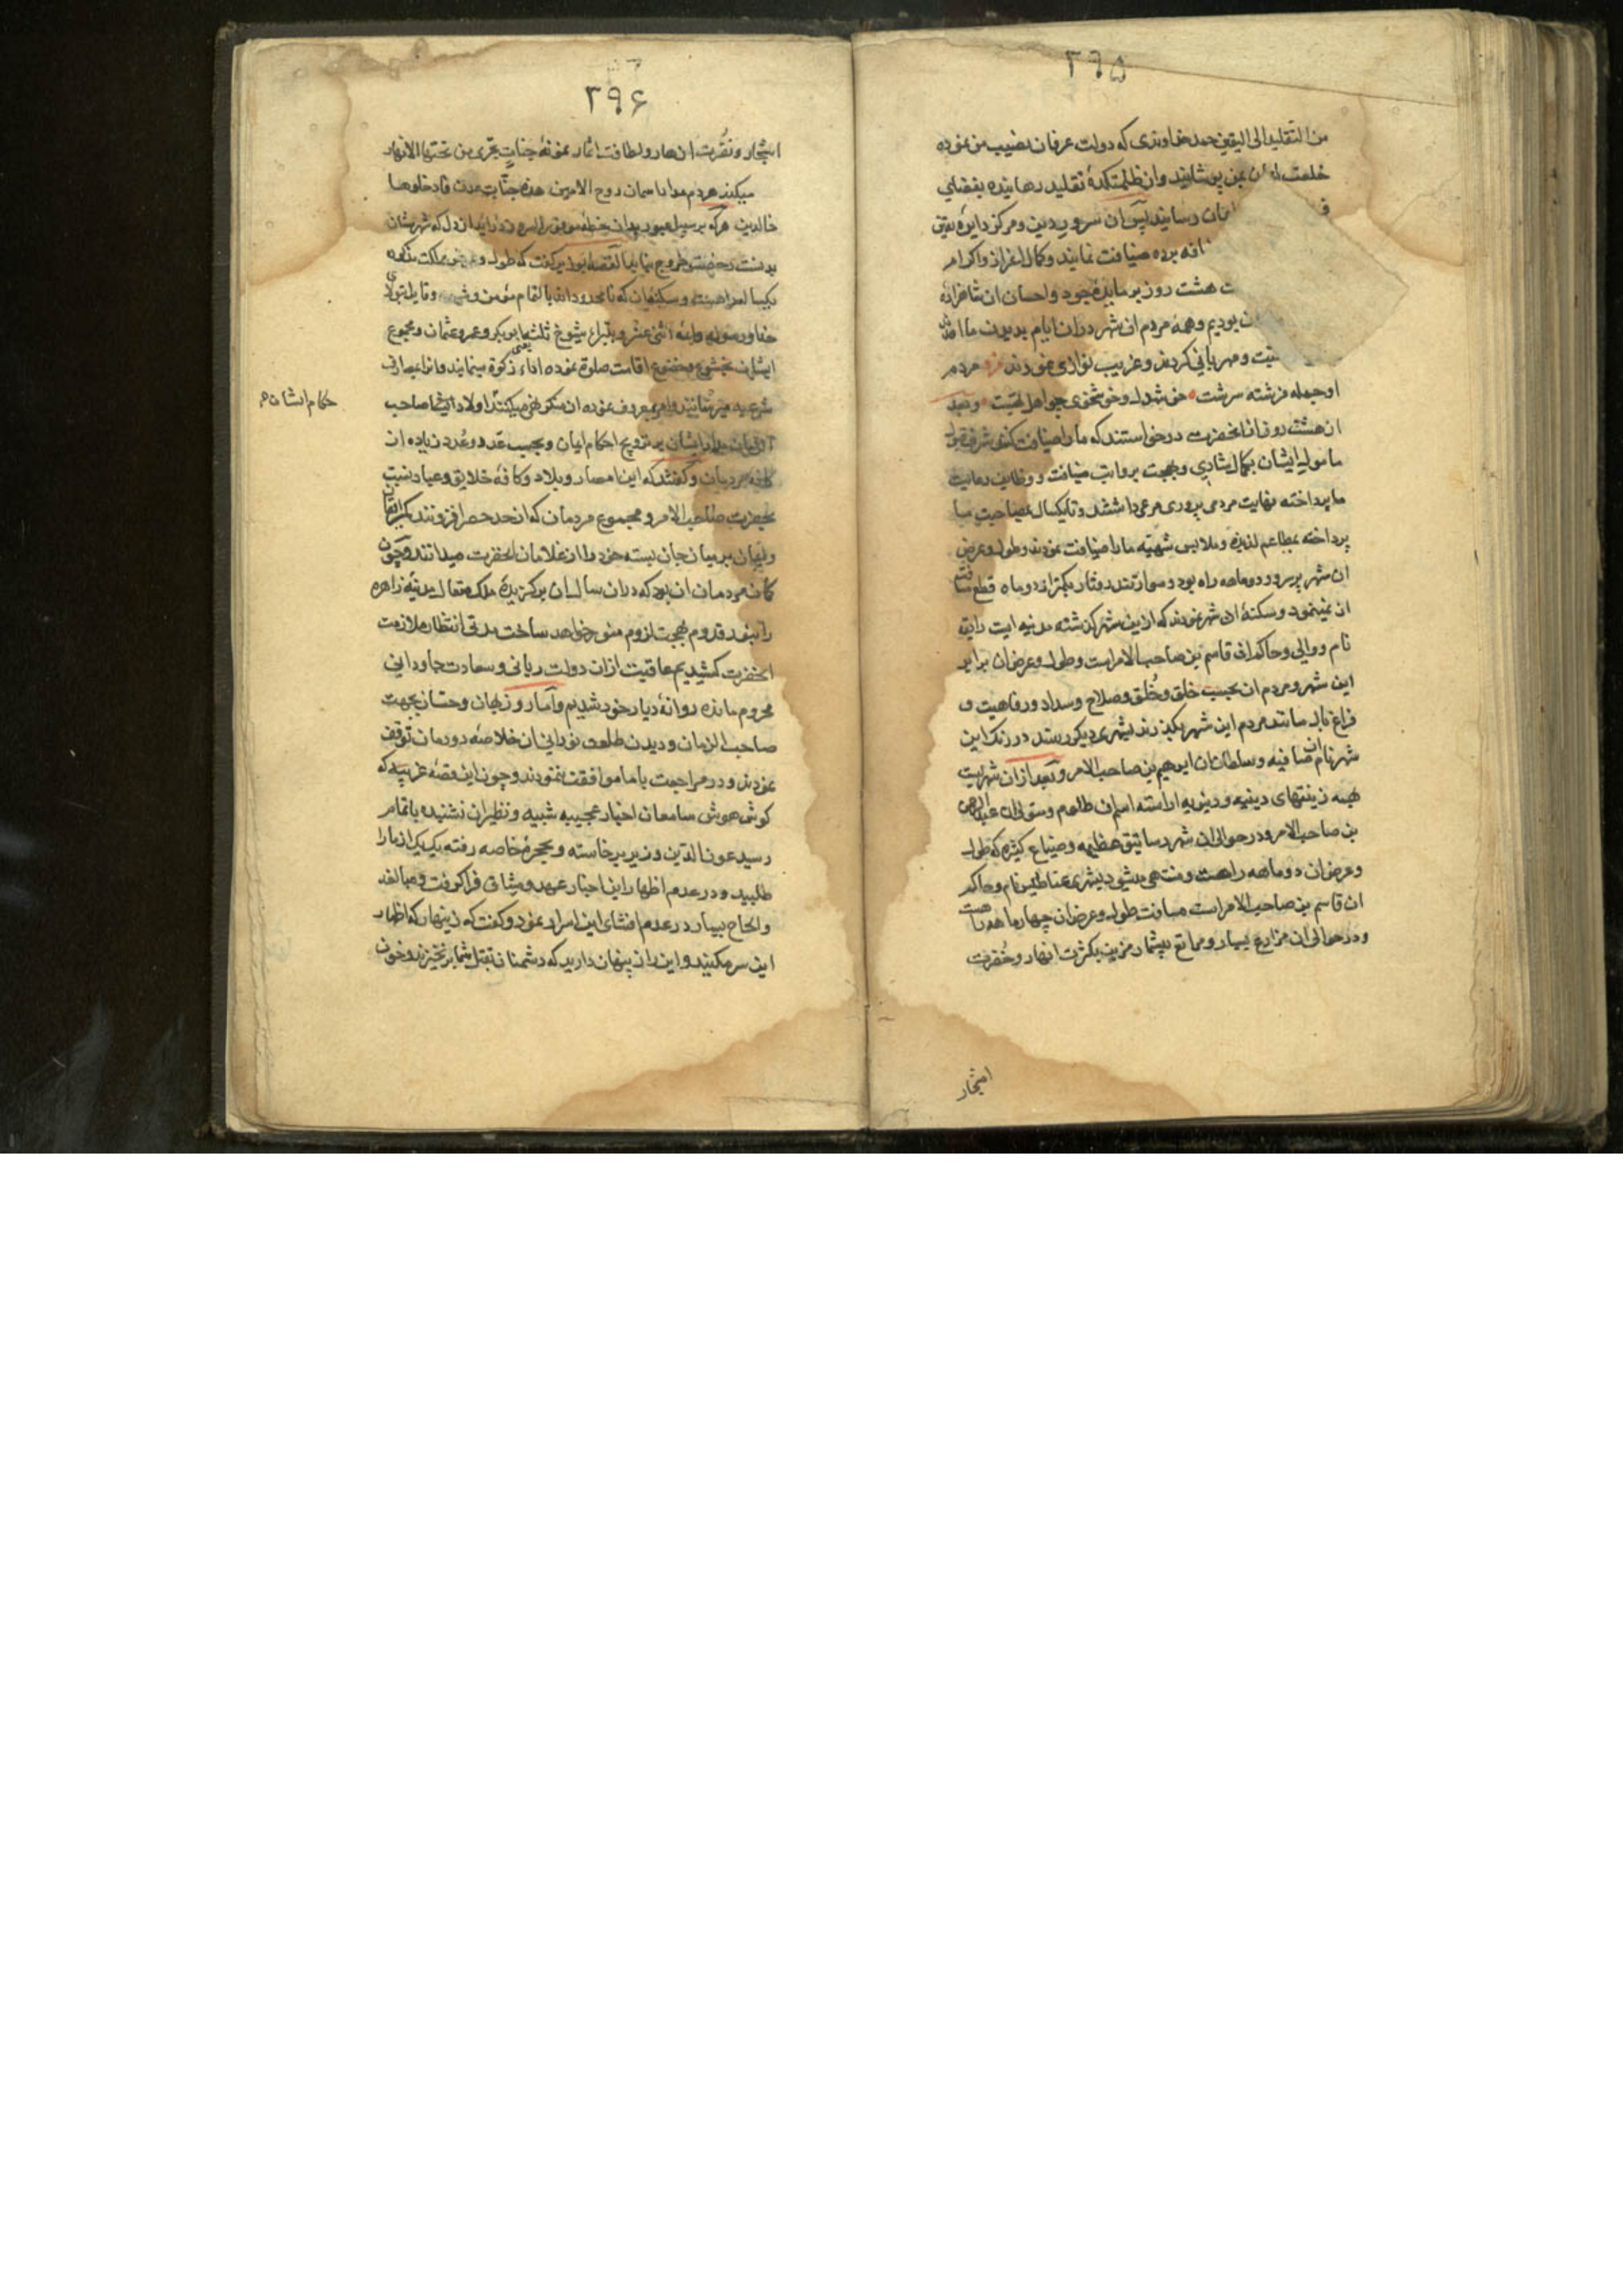 ۲۹۵
من التقلید الی الیقین حمد خداوندی که دولت عرفان نصیب من نموده
خلعت ایمان بمن پوشانید و از ظلمتکدهٔ تقلید رهانیده بفضای
ایمان رسانید پس آن سرور دین و مرکز دایرهٔ یقین
افه برده ضیافت نمایند و کمال اعزاز و اکرام
ت هشت روز بر مایدهٔ جود و احسان آن شاهزاده
ن بودیم و همهٔ مردم آن شهر در آن ایام بدیدن ما آمده
و مهربانی کردند و غریب نوازی نمودند مردم
او جمله فرشته سرشت خوش دل و خوشخوی چو اهل بهشت و بعد
از هشت روز از آنحضرت درخواستند که ما را ضیافت کنند شرف قبول
مامول ایشان بکمال شادی و بهجت بروایت ضیافت و وظایف رعایت
ما پرداخته نهایت مردمی پروری مرعی داشتند و تا یکسال بمصاحبت ما
پرداخته بمطاعم لذیذه و ملابس شهیّه ما را ضیافت نمودند و طول و عرض
آن شهر پرسرور دو ماهه راه بود و سوار تندرفتار بکمتر از دو ماه قطع مسافت
آن نمینمود و سکنهٔ آن شهر نمودند که ازین شهر گذشته مدینه ایست رایقه
نام و والی و حاکم آن قاسم بن صاحب الامر است و طول و عرض آن برابر
این شهر و مردم آن بحسب خلق و خُلق و صلاح و سداد و رفاهیت و
فراغ بال مانند مردم این شهر و بگذرند بشهری دیگر رسند در رنگ این
شهر نام آن صافیه و سلطان آن ابرهیم بن صاحب الامر و بعد از آن شهریست
بهمه زینتهای دینیه و دنیویه آراسته اسم آن طلوم و متولی آن عبدالرحمن
بن صاحب الامر و در حوالی آن شهر رساتیق عظیمه و ضیاع کثیره که طول
و عرض آن دو ماهه راهست و منتهی میشود بشهری عناطیس نام و حاکم
آن قاسم بن صاحب الامر است مسافت طول و عرض آن چهار ماهه راهست
و در حوالی آن مزارع بسیار و مراتع بیشمار مزین بکثرت انهار و خُضرت
اشجار
۲۹۶
اشجار و نضرت ازهار و لطافت اثمار نمونهٔ جناتٍ تجری من تحتها الانهار
میکند هردم ندا با سمان روح الامین هذه جنات عدن فادخلوها
خالدین هرکه بر سبیل عبور بدان خطهٔ موفور السرور درآید از دل که شهرستان
بدنست رخصت خروج نیابد القصه بواسر گفت که طول و عرض مملکت مذکوره
یکساله راهست و سکنهٔ آن که نامحدوداند بالتمام مؤمن و شیعه و قایل بتولای
خدا و رسول و ائمه اثنی عشر و بتبراء شیوخ ثلث یعنی ابوبکر و عمر و عثمان و مجموع
ایشان بخشوع و خضوع اقامت صلوة نموده اداء زکوة مینمایند و آنرا بمصارف
شرعیه میرسانند و امر بمعروف نموده از منکر نهی میکنند اولاد ایشان صاحب
الزمان مدار ایشان بر ترویج احکام ایمان و بحسب عَدد و عُدد زیاده از
حکام ایشان
کافهٔ مردمان و گفتند که این امصار و بلاد و کافهٔ خلایق و عباد نسبت
بحضرت صاحب الامر و مجموع مردمان که از حد حصر افزونند
و پنهان بر میان جان بسته خود را از غلامان آنحضرت میدانند و چون
گمان مردمان آن بود که در آن سال آن برگزیدهٔ ملک متعال مدینهٔ زاهره
را بنور قدوم بهجت لزوم منور خواهد ساخت مدتی انتظار ملازمت
آنحضرت کشیدیم عاقبت از آن دولت ربانی و سعادت جاودانی
محروم مانده روانهٔ دیار خود شدیم و اما روزبهان و حسان بجهت
صاحب الزمان و دیدن طلعت نورانی آن خلاصهٔ دودمان توقف
نمودند و در مراجعت با ما موافقت ننمودند و چون این قصهٔ غریبه که
گوش هوش سامعان اخبار عجیبه شبیه و نظیر آن نشنیده باتمام
رسید عون الدین وزیر برخاسته و بحجرهٔ خاصه رفته یک یک از ما را
طلبید و در عدم اظهار این اخبار عهد و میثاق فرا گرفت و مبالغه
و الحاح بسیار در عدم افشای این اسرار نمود و گفت که زینهار که اظهار
این سر مکنید و این راز پنهان دارید که دشمنان بقتل شما برنخیزند و خون